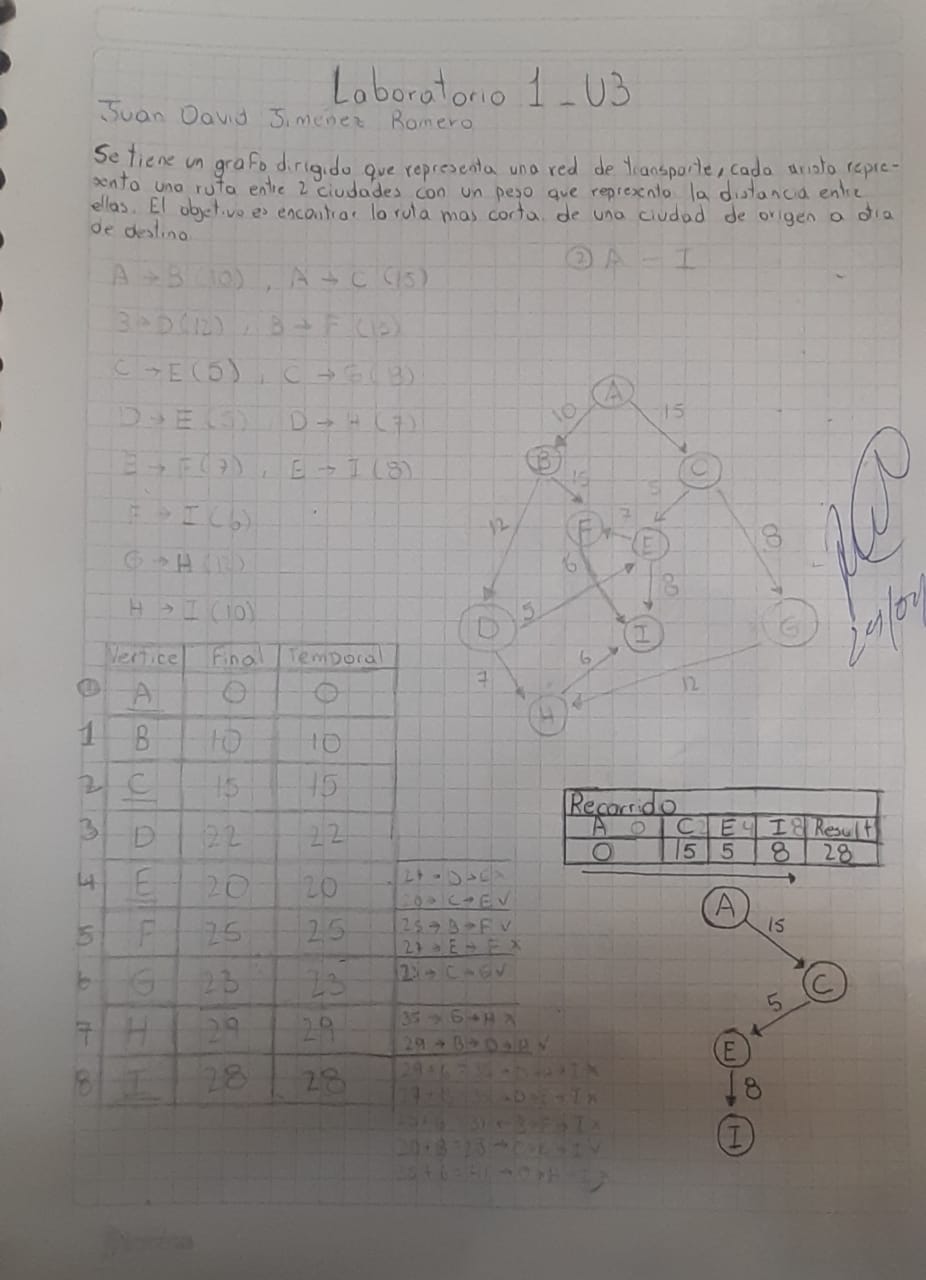 Laboratorio 1 - U3
Juan David Jimenez Romero
Se tiene un grafo dirigido que representa una red de transporte, cada arista repre-
senta una ruta entre 2 ciudades con un peso que represento la distancia entre
ellas. El objetivo es encontrar la ruta mas corta de una ciudad de origen a otra
de destino
② A - I
A → B (10) , A → C (15)
B → D (12) , B → F (15)
C → E (5) , C → G (8)
D → E (5) D → H (7)
E → F (7) , E → I (8)
F → I (6)
G → H (12)
H → I (10)
A
10 15
B C
15 5
12 F 7 E 8
6 8
D 5 I G
7 6 12
H
Vertice Final Temporal
0 A 0 0
1 B 10 10
2 C 15 15
3 D 22 22
4 E 20 20
20 → C → E ✓
5 F 25 25
25 → B → F ✓
27 → E → F x
6 G 23 23
23 → C → G ✓
7 H 29 29
35 → G → H x
29 → B → D → H ✓
8 I 28 28
Recorrido
A 0 C 2 E 4 I 8 Result
0 15 5 8 28
A
15
C
5
E
8
I